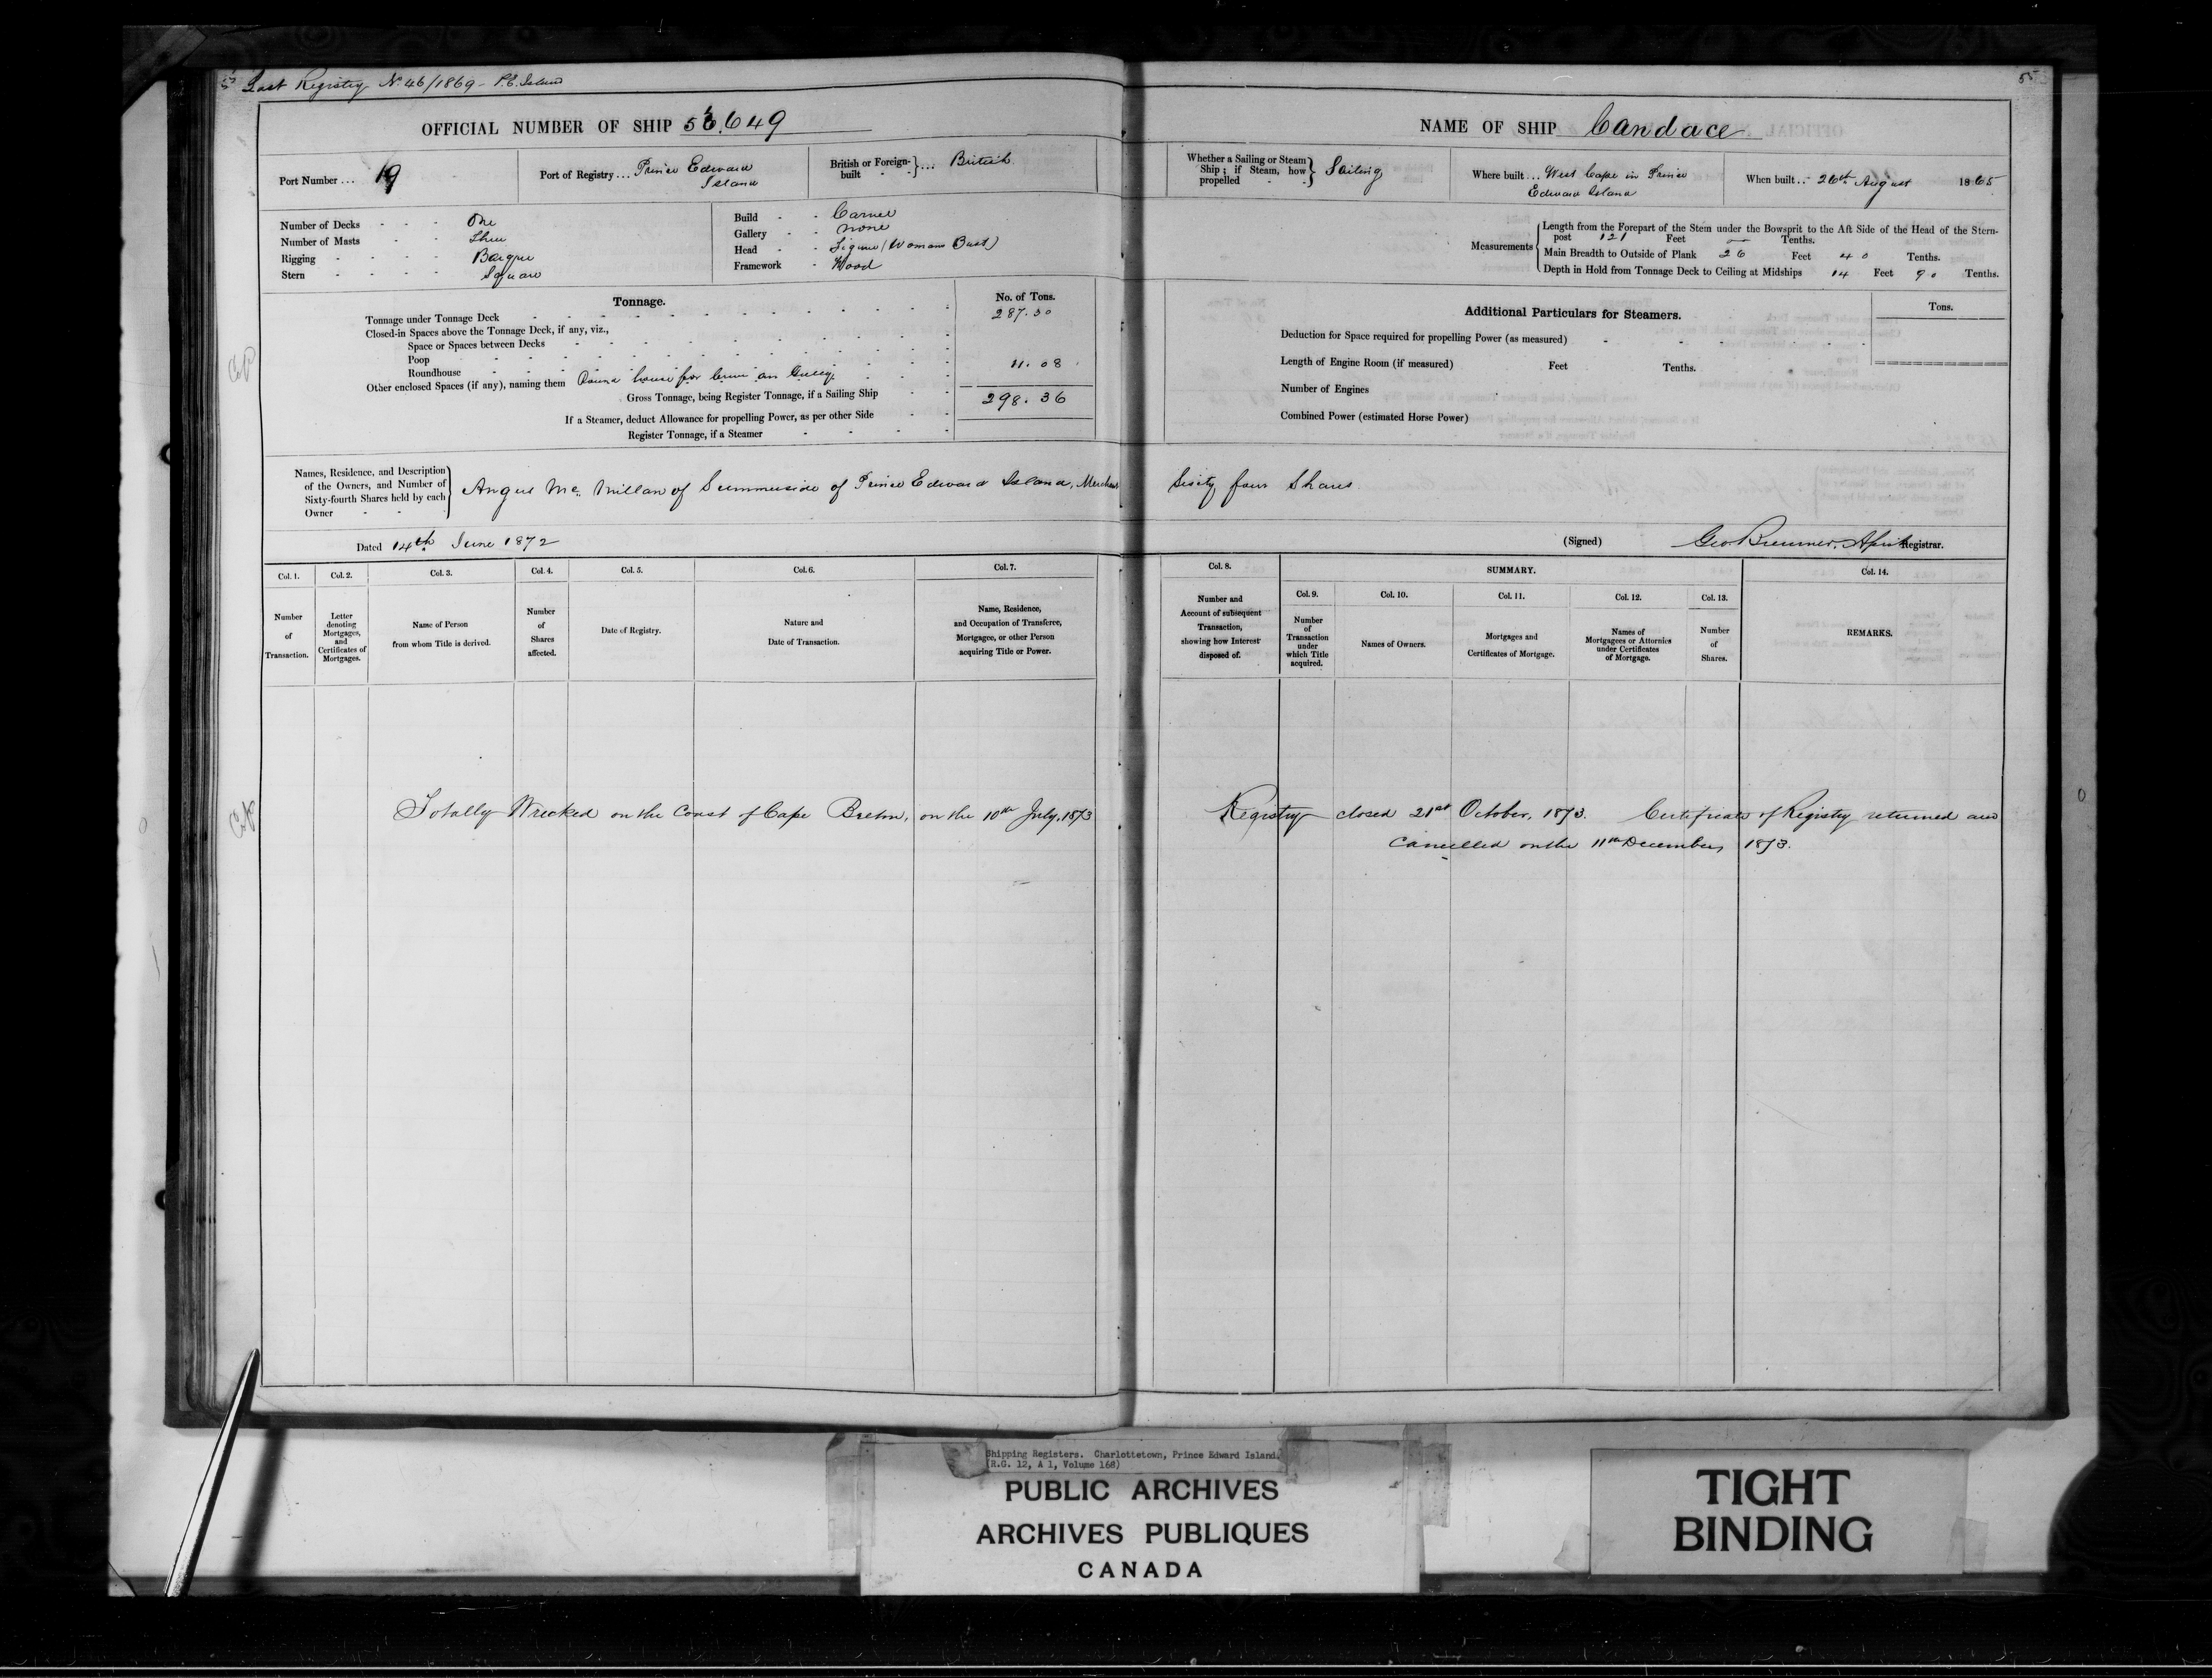 Last Registry No. 46/1869 - P.E. Island
OFFICIAL NUMBER OF SHIP 56,649
Port Number ... 19
Port of Registry ... Prince Edward Island
British or Foreign-built - - } ... British
Number of Decks - - - One
Number of Masts - - Three
Rigging - - - - Barque
Stern - - - - Square
Build - - Carvel
Gallery - - none
Head - - Figure (Womans Bust)
Framework - Wood
Tonnage.
No. of Tons.
Tonnage under Tonnage Deck 287.30
Closed-in Spaces above the Tonnage Deck, if any, viz.,
Space or Spaces between Decks
Poop
Roundhouse
Other enclosed Spaces (if any), naming them Round house for Crew an Galley 11.08
Gross Tonnage, being Register Tonnage, if a Sailing Ship 298.36
If a Steamer, deduct Allowance for propelling Power, as per other Side
Register Tonnage, if a Steamer
Names, Residence, and Description of the Owners, and Number of Sixty-fourth Shares held by each Owner - - } Angus Mc Millan of Summerside of Prince Edward Island, Merchant
Dated 14th June 1872
Col. 1. Col. 2. Col. 3. Col. 4. Col. 5. Col. 6. Col. 7.
Number of Transaction.
Letter denoting Mortgages, and Certificates of Mortgages.
Name of Person from whom Title is derived.
Number of Shares affected.
Date of Registry.
Nature and Date of Transaction.
Name, Residence, and Occupation of Transferee, Mortgagee, or other Person acquiring Title or Power.
Totally Wrecked on the Coast of Cape Breton, on the 10th July, 1873
55
NAME OF SHIP Candace
Whether a Sailing or Steam Ship; if Steam, how propelled - - } Sailing
Where built ... West Cape in Prince Edward Island
When built ... 26th August 1865
Measurements
Length from the Forepart of the Stem under the Bowsprit to the Aft Side of the Head of the Stern-
post 121 Feet — Tenths.
Main Breadth to Outside of Plank 26 Feet 40 Tenths.
Depth in Hold from Tonnage Deck to Ceiling at Midships 14 Feet 90 Tenths.
Additional Particulars for Steamers.
Tons.
Deduction for Space required for propelling Power (as measured)
Length of Engine Room (if measured) Feet Tenths.
Number of Engines
Combined Power (estimated Horse Power)
Sixty four Shares
(Signed) Geo Bremner, Registrar.
Col. 8. SUMMARY. Col. 14.
Col. 9. Col. 10. Col. 11. Col. 12. Col. 13.
Number and Account of subsequent Transaction, showing how Interest disposed of.
Number of Transaction under which Title acquired.
Names of Owners.
Mortgages and Certificates of Mortgage.
Names of Mortgagees or Attornies under Certificates of Mortgage.
Number of Shares.
REMARKS.
Registry closed 21st October, 1873. Certificate of Registry returned and
cancelled on the 11th December, 1873.
Shipping Registers. Charlottetown, Prince Edward Island.
(R.G. 12, A 1, Volume 168)
PUBLIC ARCHIVES
ARCHIVES PUBLIQUES
CANADA
TIGHT
BINDING